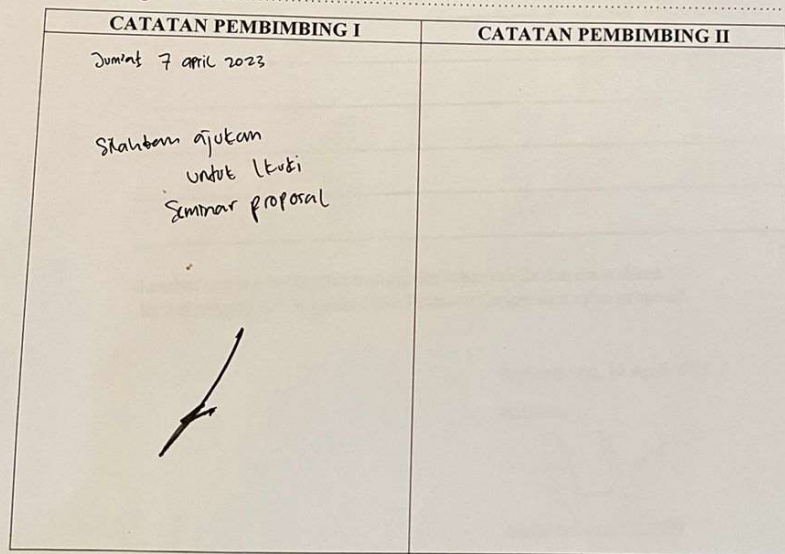 CATATAN PEMBIMBING I
CATATAN PEMBIMBING II
Jum'at 7 april 2023
Silahkan ajukan
untuk Ikuti
Seminar proposal